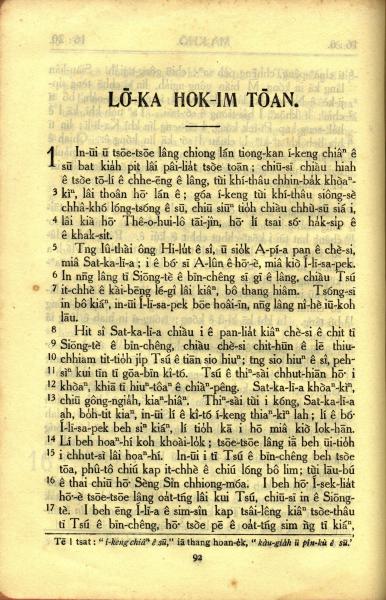 LŌ-KA HOK-IM TŌAN.
1 In-ūi ū tsōe-tsōe lâng chiong lán tiong-kan í-keng chiâⁿ ê
sū bat kia̍h pit lâi pâi-lia̍t tsòe toān; chiū-sī chiàu hiah
ê tsòe tō-lí ê chhe-ēng ê lâng, tùi khí-thâu chhin-ba̍k khòaⁿ-
3 kìⁿ, lâi thoân hō͘ lán ê; góa í-keng tùi khí-thâu siông-sè
chhâ-khó lóng-tsóng ê sū, chiū siūⁿ tio̍h chiàu chhù-sū siá i,
4 lâi kià hō͘ Thê-o-hui-lô tāi-jîn, hō͘ lí tsai só͘ ha̍k-si̍p ê
ê khak-sit.
5 Tng Iû-thài ông Hi-lu̍t ê sî, ū sio̍k A-pí-a pan ê chè-si,
miâ Sat-ka-lī-a; i ê bó͘ sī A-lûn ê hō͘-è, miâ kiò Í-lī-sa-pek.
6 In nn̄g lâng tī Siōng-tè ê bīn-chêng sī gī ê lâng, chiàu Tsú
7 it-chhè ê kài-bēng lé-gî lâi kiâⁿ, bô thang hiâm. Tsóng-sī
in bô kiáⁿ, in-ūi Í-lī-sa-pek bōe hoâi-īn, nn̄g lâng nî-hè iū-koh
lāu.
8 Hit sî Sat-ka-lī-a chiàu i ê pan-lia̍t kiâⁿ chè-si ê chit tī
9 Siōng-tè ê bīn-chêng, chiàu chè-si chit-hūn ê lē thiu-
10 chhiam tit-tio̍h ji̍p Tsú ê tiān sio hiuⁿ; tng sio hiuⁿ ê sî, peh-
11 sìⁿ kui tīn tī gōa-bīn kî-tó. Tsú ê thiⁿ-sài chhut-hiān hō͘ i
12 khòaⁿ, khiā tī hiuⁿ-tôaⁿ ê chiàⁿ-pêng. Sat-ka-lī-a khòaⁿ-kìⁿ,
13 chiū gông-ngia̍h, kiaⁿ-hiâⁿ. Thiⁿ-sài tùi i kóng, Sat-ka-lī-a
ah, bo̍h-tit kiaⁿ, in-ūi lí ê kî-tó í-keng thiaⁿ-kìⁿ lah; lí ê bó͘
Í-lī-sa-pek beh siⁿ kiáⁿ, lí tio̍h kā i hō miâ kiò Iok-hān.
14 Lí beh hoaⁿ-hí koh khoài-lo̍k; tsōe-tsōe lâng iā beh ūi-tio̍h
15 i chhut-sì lâi hoaⁿ-hí. In-ūi i tī Tsú ê bīn-chêng beh tsòe
tōa, phû-tô chiú kap it-chhè ê chiú lóng bô lim; tùi lāu-bú
16 ê thai chiū hō͘ Sèng Sîn chhiong-móa. I beh hō͘ Í-sek-lia̍t
hō͘-è tsōe-tsōe lâng oa̍t-tńg lâi kui Tsú, chiū-sī in ê Siōng-
17 tè. I beh ēng Í-lī-a ê sim-sîn kap tsâi-lêng kiâⁿ tsòe-thâu
tī Tsú ê bīn-chêng, hō͘ tsòe pē ê oa̍t-tńg sim n̂g tī kiáⁿ,
Tē 1 tsat: “í-keng chiâⁿ ê sū,” iā thang hoan-e̍k, “kàu-gia̍h ū pîn-kù ê sū.’
92